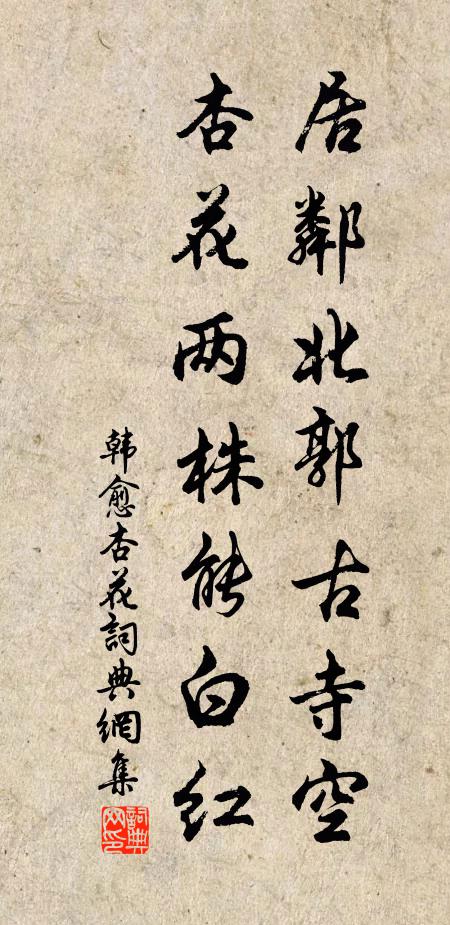 居鄰北郭古寺空
杏花两株能白红
韩愈杏花詞典網集
詞典
网印